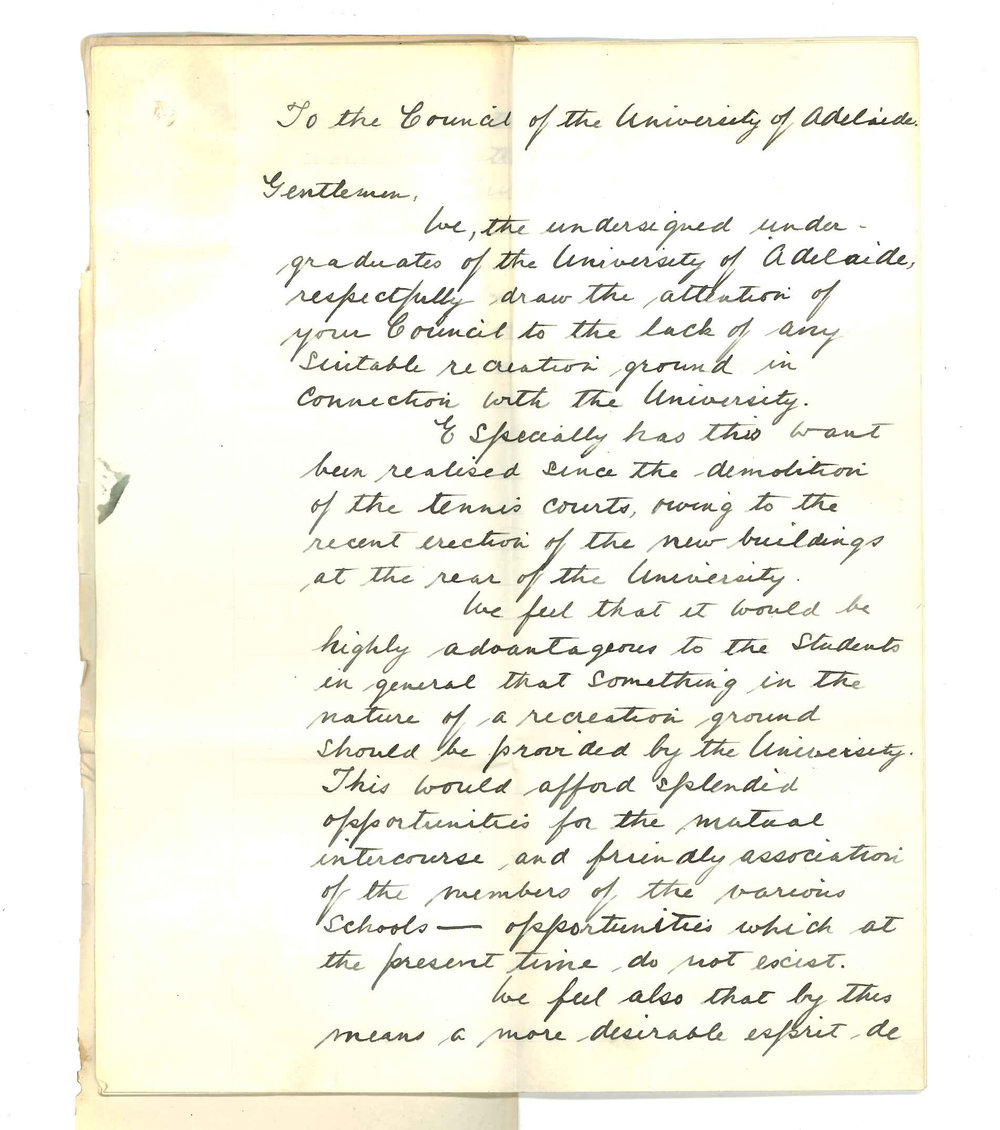 To the Council of the University of Adelaide.
Gentlemen,
We, the undersigned under-
graduates of the University of Adelaide,
respectfully draw the attention of
your Council to the lack of any
suitable recreation ground in
connection with the University.
Especially has this want
been realised since the demolition
of the tennis courts, owing to the
recent erection of the new buildings
at the rear of the University.
We feel that it would be
highly advantageous to the Students
in general that something in the
nature of a recreation ground
should be provided by the University.
This would afford splendid
opportunities for the mutual
intercourse and friendly association
of the members of the various
Schools — opportunities which at
the present time do not exist.
We feel also that by this
means a more desirable esprit de